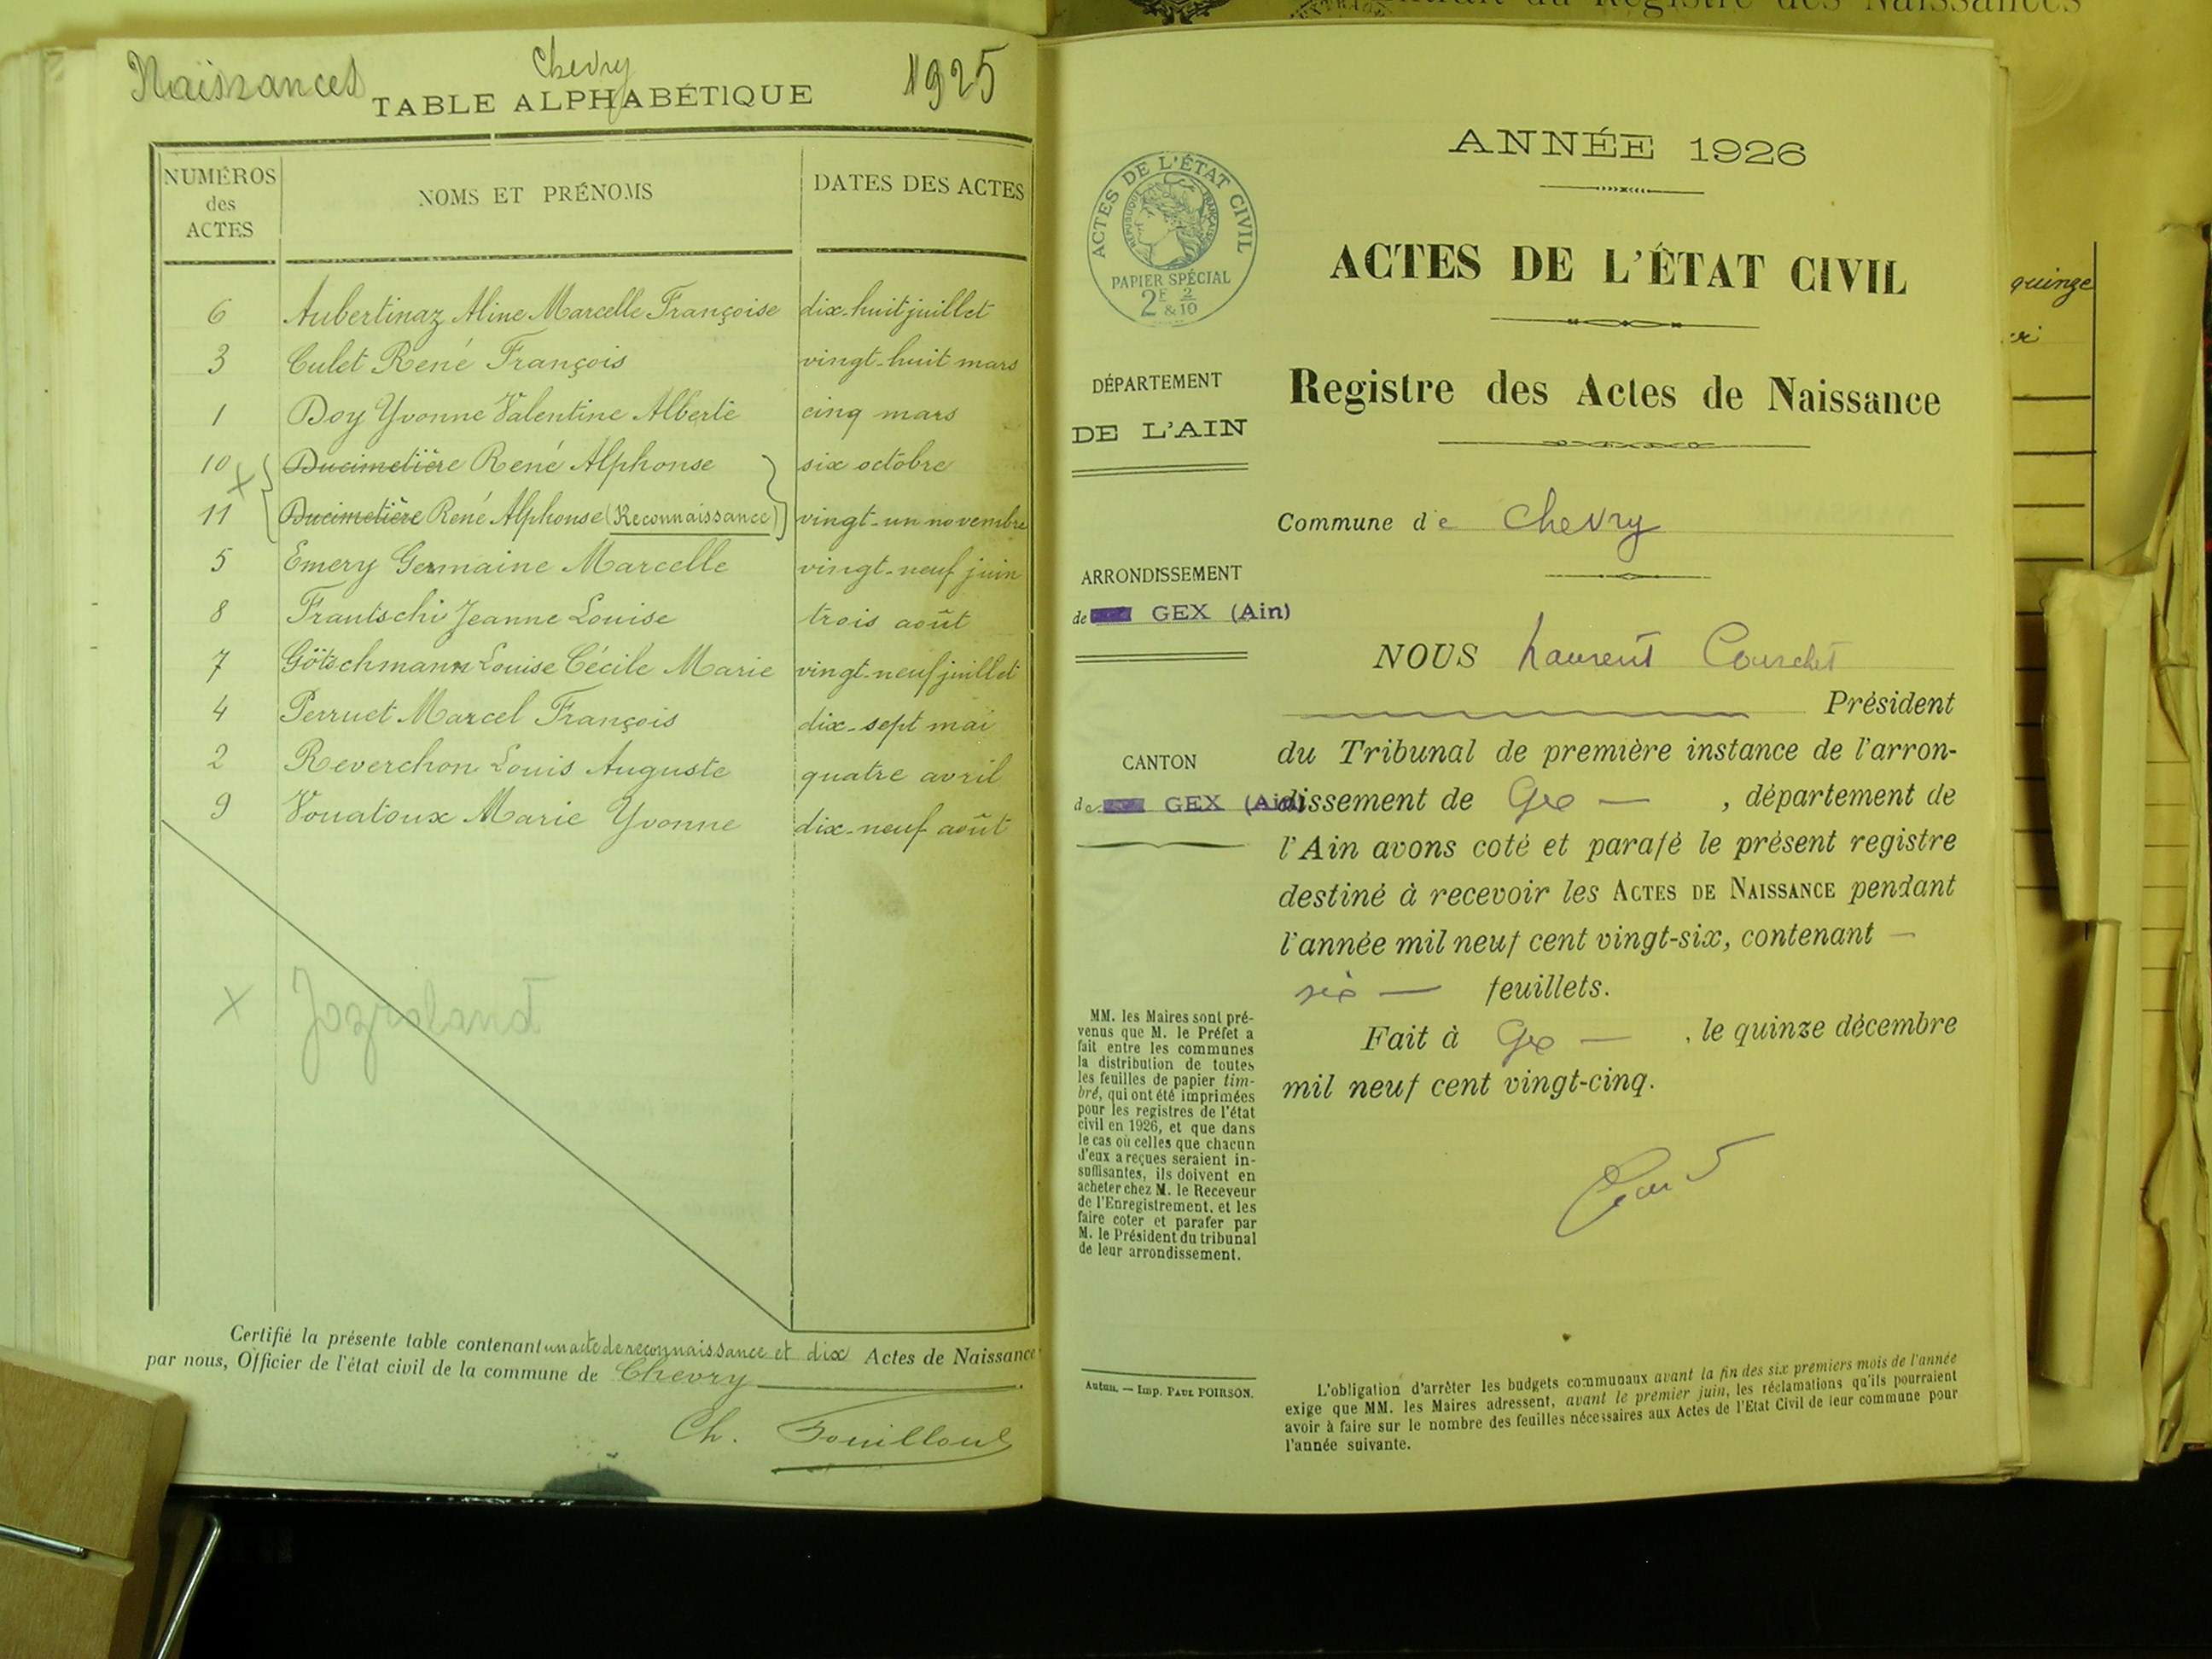 Naissances Chevry 1925
TABLE ALPHABÉTIQUE
NUMÉROS des ACTES
NOMS ET PRÉNOMS
DATES DES ACTES
6 Aubertinaz Aline Marcelle Françoise dix-huit juillet
3 Culet René François vingt-huit mars
1 Doy Yvonne Valentine Alberte cinq mars
10 Ducimetière René Alphonse six octobre
11 Ducimetière René Alphonse (Reconnaissance) vingt-un novembre
5 Emery Germaine Marcelle vingt-neuf juin
8 Frautschi Jeanne Louise trois août
7 Götschmann Louise Cécile Marie vingt-neuf juillet
4 Perruet Marcel François dix-sept mai
2 Reverchon Louis Auguste quatre avril
9 Vouatoux Marie Yvonne dix-neuf août
X
Certifié la présente table contenant un acte de reconnaissance et dix Actes de Naissance
par nous, Officier de l'état civil de la commune de Chevry
Ch. Fouilloux
ANNÉE 1926
ACTES DE L'ÉTAT CIVIL
RÉPUBLIQUE FRANÇAISE
PAPIER SPÉCIAL
2F & 2/10
ACTES DE L'ÉTAT CIVIL
Registre des Actes de Naissance
DÉPARTEMENT
DE L'AIN
Commune de Chevry
ARRONDISSEMENT
de GEX (Ain)
CANTON
de GEX (Ain)
NOUS Laurent Courchet
Président
du Tribunal de première instance de l'arron-
dissement de Gex — , département de
l'Ain avons coté et parafé le présent registre
destiné à recevoir les ACTES DE NAISSANCE pendant
l'année mil neuf cent vingt-six, contenant —
six — feuillets.
Fait à Gex — , le quinze décembre
mil neuf cent vingt-cinq.
MM. les Maires sont pré-
venus que M. le Préfet a
fait entre les communes
la distribution de toutes
les feuilles de papier tim-
bré, qui ont été imprimées
pour les registres de l'état
civil en 1926, et que dans
le cas où celles que chacun
d'eux a reçues seraient in-
suffisantes, ils doivent en
acheter chez M. le Receveur
de l'Enregistrement, et les
faire coter et parafer par
M. le Président du tribunal
de leur arrondissement.
Autun. — Imp. PAUL POIRSON.
L'obligation d'arrêter les budgets communaux avant la fin des six premiers mois de l'année
exige que MM. les Maires adressent, avant le premier juin, les réclamations qu'ils pourraient
avoir à faire sur le nombre des feuilles nécessaires aux Actes de l'Etat Civil de leur commune pour
l'année suivante.
quinze